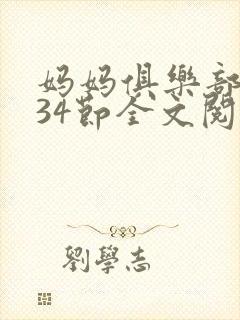 妈妈俱樂部
34節全文閱
劉學志